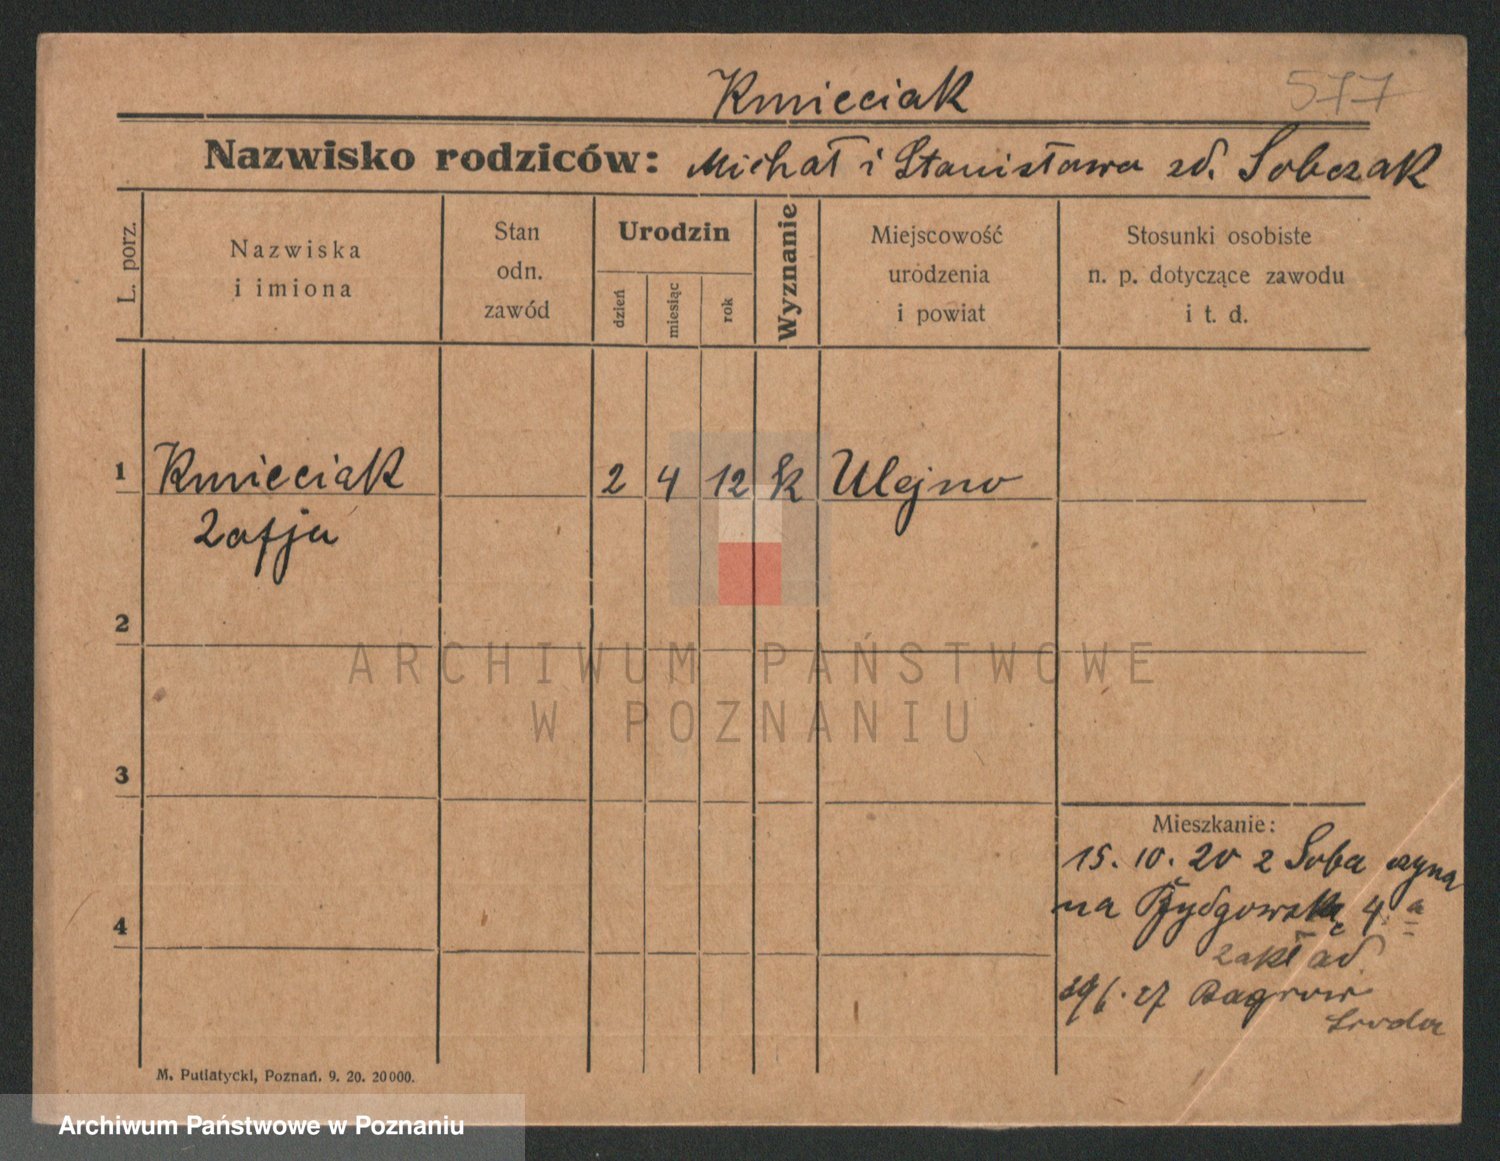 Kmieciak
577
Nazwisko rodziców: Michał i Stanisława zd. Sobczak
L. porz.
Nazwiska
i imiona
Stan
odn.
zawód
Urodzin
dzień
miesiąc
rok
Wyznanie
Miejscowość
urodzenia
i powiat
Stosunki osobiste
n. p. dotyczące zawodu
i t. d.
1 Kmieciak 2 4 12 k Ulejno
Zofja
2
ARCHIWUM PAŃSTWOWE
W POZNANIU
3
Mieszkanie:
15. 10. 20 z
na Bydgowską 4 a
4
zakład
27 Bagrow
Środa
M. Putiatycki, Poznań. 9. 20. 20000.
Archiwum Państwowe w Poznaniu